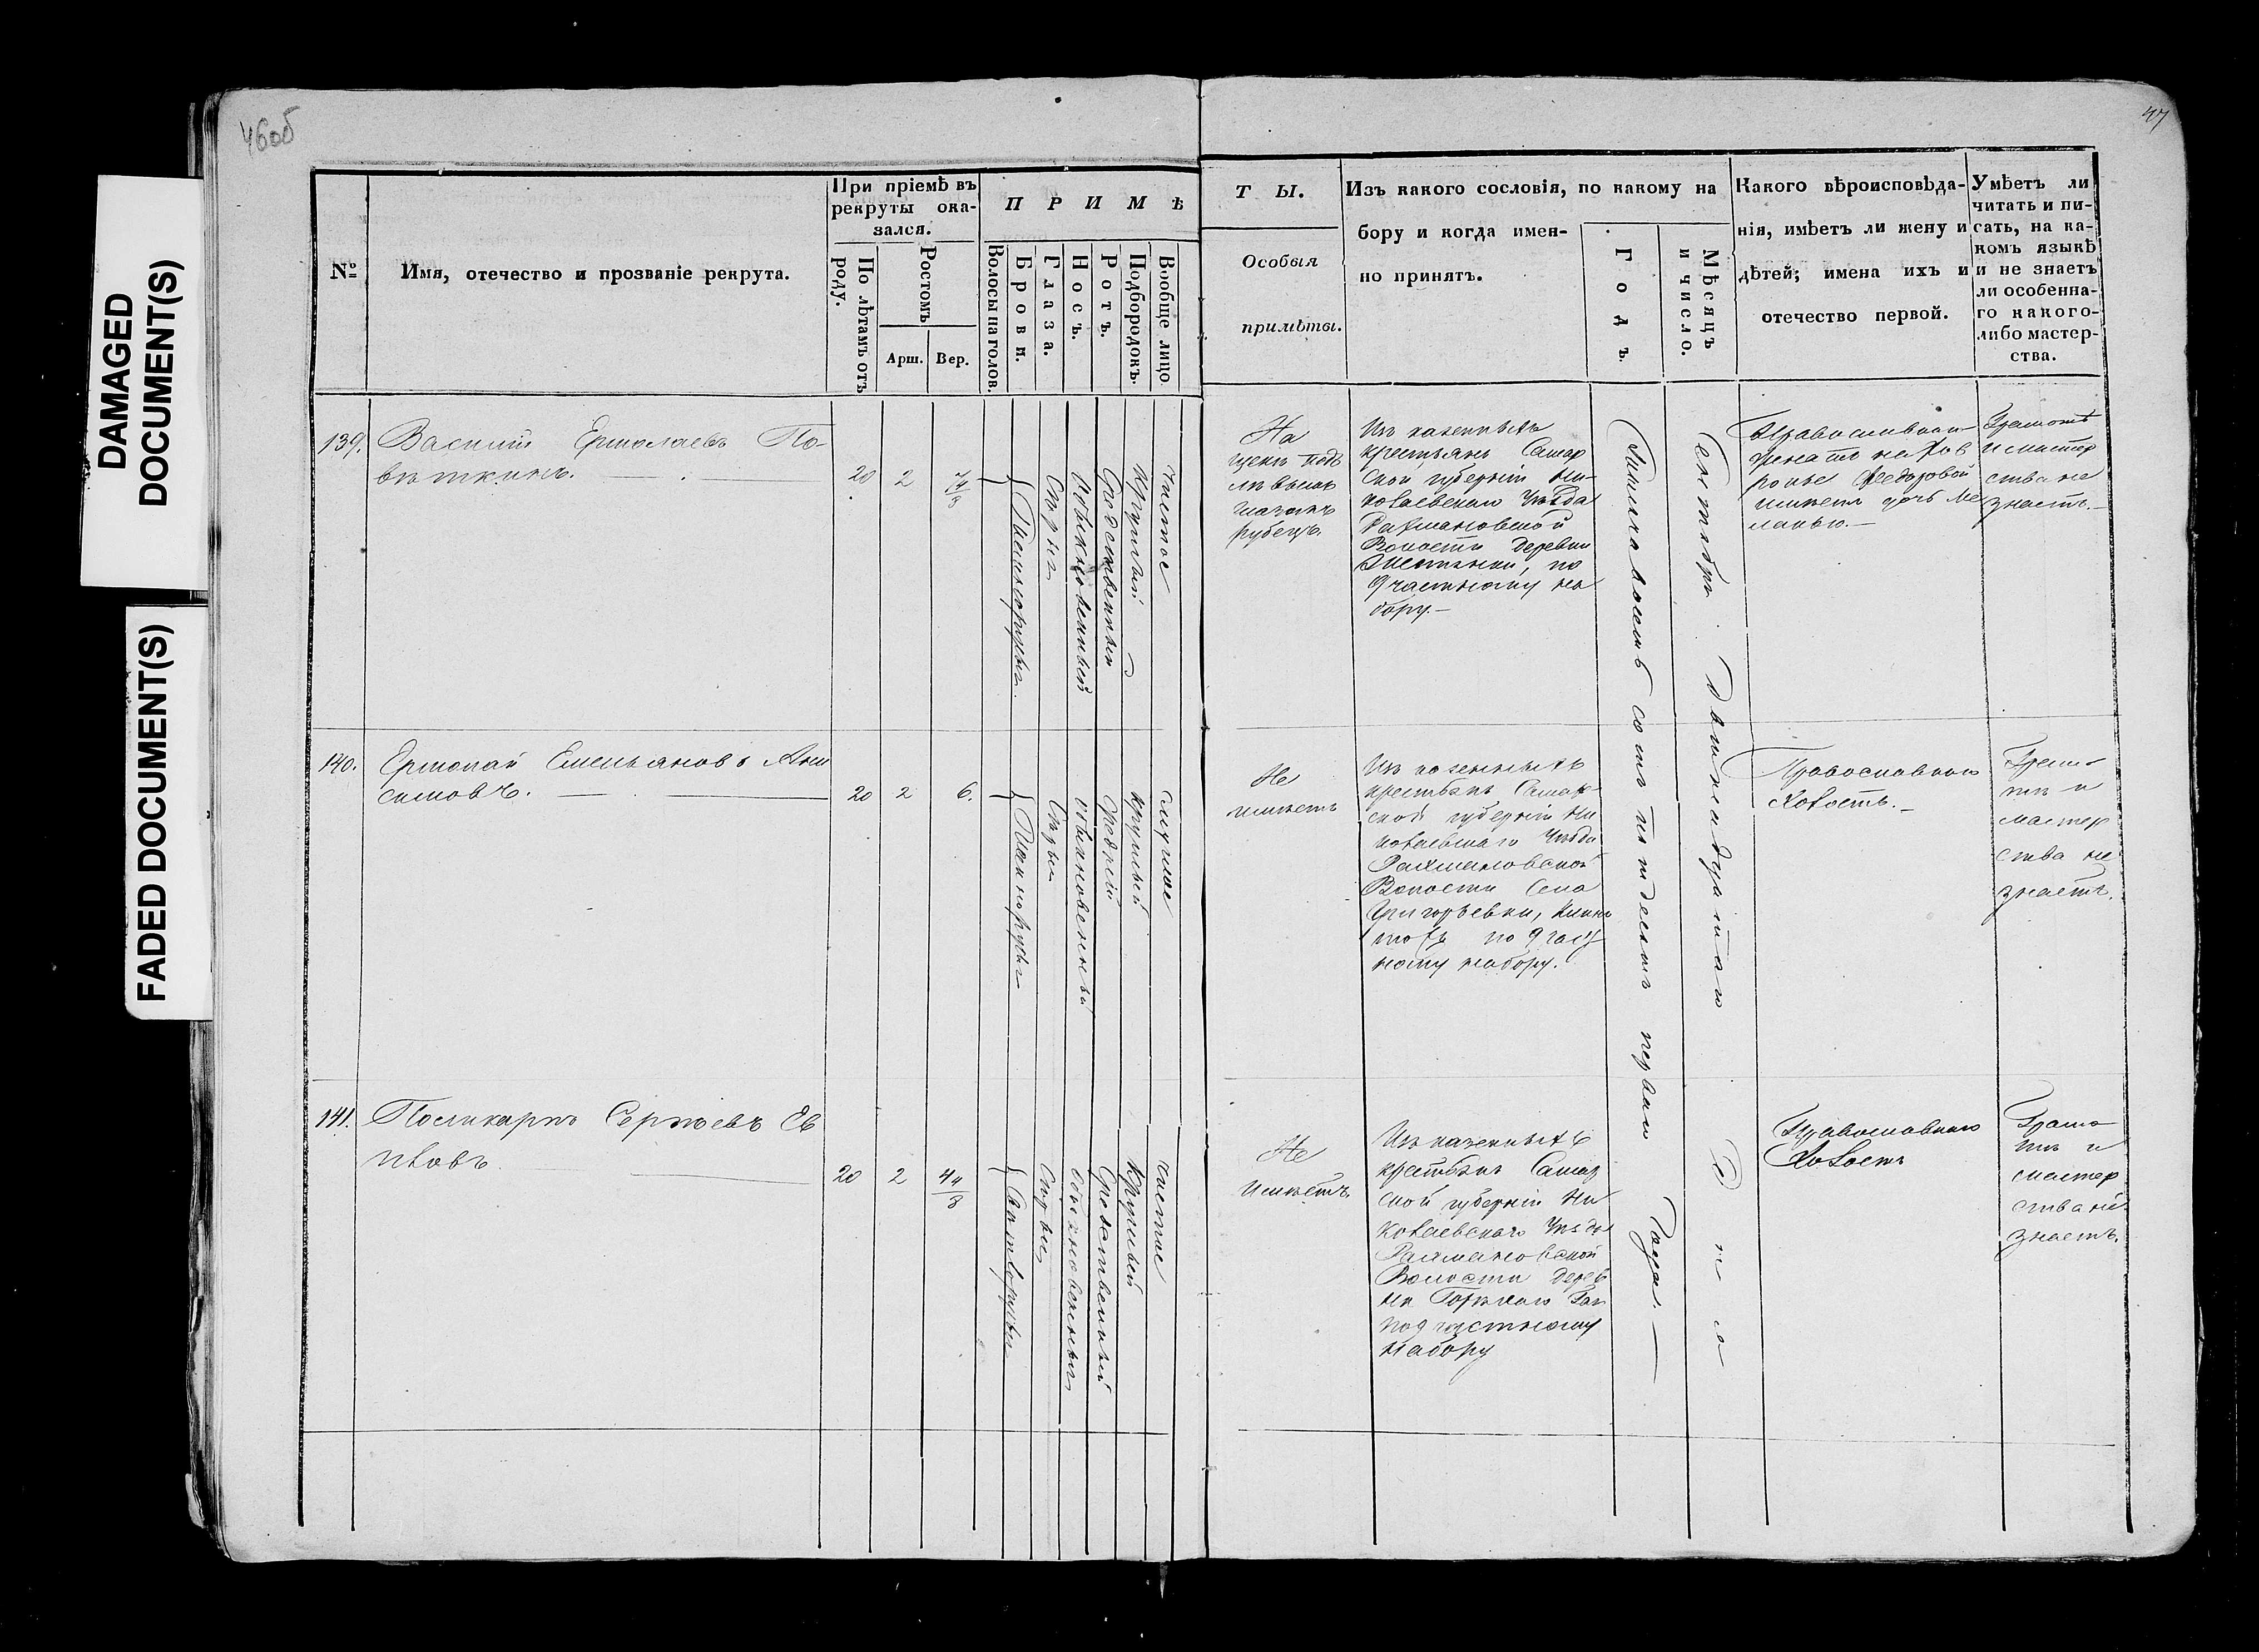 DAMAGED
DOCUMENT(S)
FADED DOCUMENT(S)
46об
47
№
Имя, отечество и прозваніе рекрута.
При пріемѣ въ
рекруты ока-
зался.
По лѣтамъ отъ
роду.
Ростомъ
Арш. Вер.
П Р И М Ѣ
Волосы на голов.
Брови.
Глаза.
Носъ.
Ротъ.
Подбородокъ.
Вообще лицо
Т Ы.
Особыя
примѣты.
Изъ какого сословія, по какому на
бору и когда имен-
но принятъ.
Годъ.
Мѣсяцъ
и число.
Какого вѣроисповѣда-
нія, имѣетъ ли жену и
дѣтей; имена ихъ и
отечество первой.
Умѣетъ ли
читать и пи-
сать, на ка-
комъ языкѣ
и не знаетъ
ли особенна-
го какого-
либо мастер-
ства.
139. Василій Ермолаевъ По-
вѣткинъ.
20 2
Темнорусыя
Сѣрыя
Обыкновенный
Посредственный
Круглый
Чистое
На
рубецъ.
Изъ казенныхъ
крестьянъ Самар
ской губерніи Ни-
колаевскаго Уѣзда
Рахмановской
Волости деревни
по
9 частному на
бору.-
Православнаго
женатъ на Хав
роньѣ Федоровой
имѣетъ дочь Ме
ланью.-
Грамотѣ
и мастер
ства не
знаетъ.-
140. Ермолай Емельяновъ Ани
симовъ.
20 2 6.
Темнорусыя
Сѣрыя
Обыкновенный
Средній
Круглый
Смуглое
Не
имѣетъ
Изъ казенныхъ
крестьянъ Самар-
ской губерніи Ни
колаевскаго Уѣзда
Рахмановской
Волости Села
Григорьевки,
по 9 част
ному набору.
Православнаго
Холостъ.-
Грамо
тѣ и
мастер
ства не
знаетъ.
141. Поликарпъ Сергѣевъ Ев
20 2
Светлорусыя
Сѣрыя
Обыкновенный
Посредственный
Круглый
Чистое
Не
имѣетъ
Изъ казенныхъ
крестьянъ Самар
ской губерніи Ни
колаевскаго Уѣзда
Рахмановской
Волости Дерев
ни
по 9 частному
набору
Православнаго
Холостъ
Грамо
тѣ и
мастер
ства не
знаетъ.
Тысяча восемь сотъ пятдесятъ перваго Года.
Сентября Двѣнадцатаго Дня